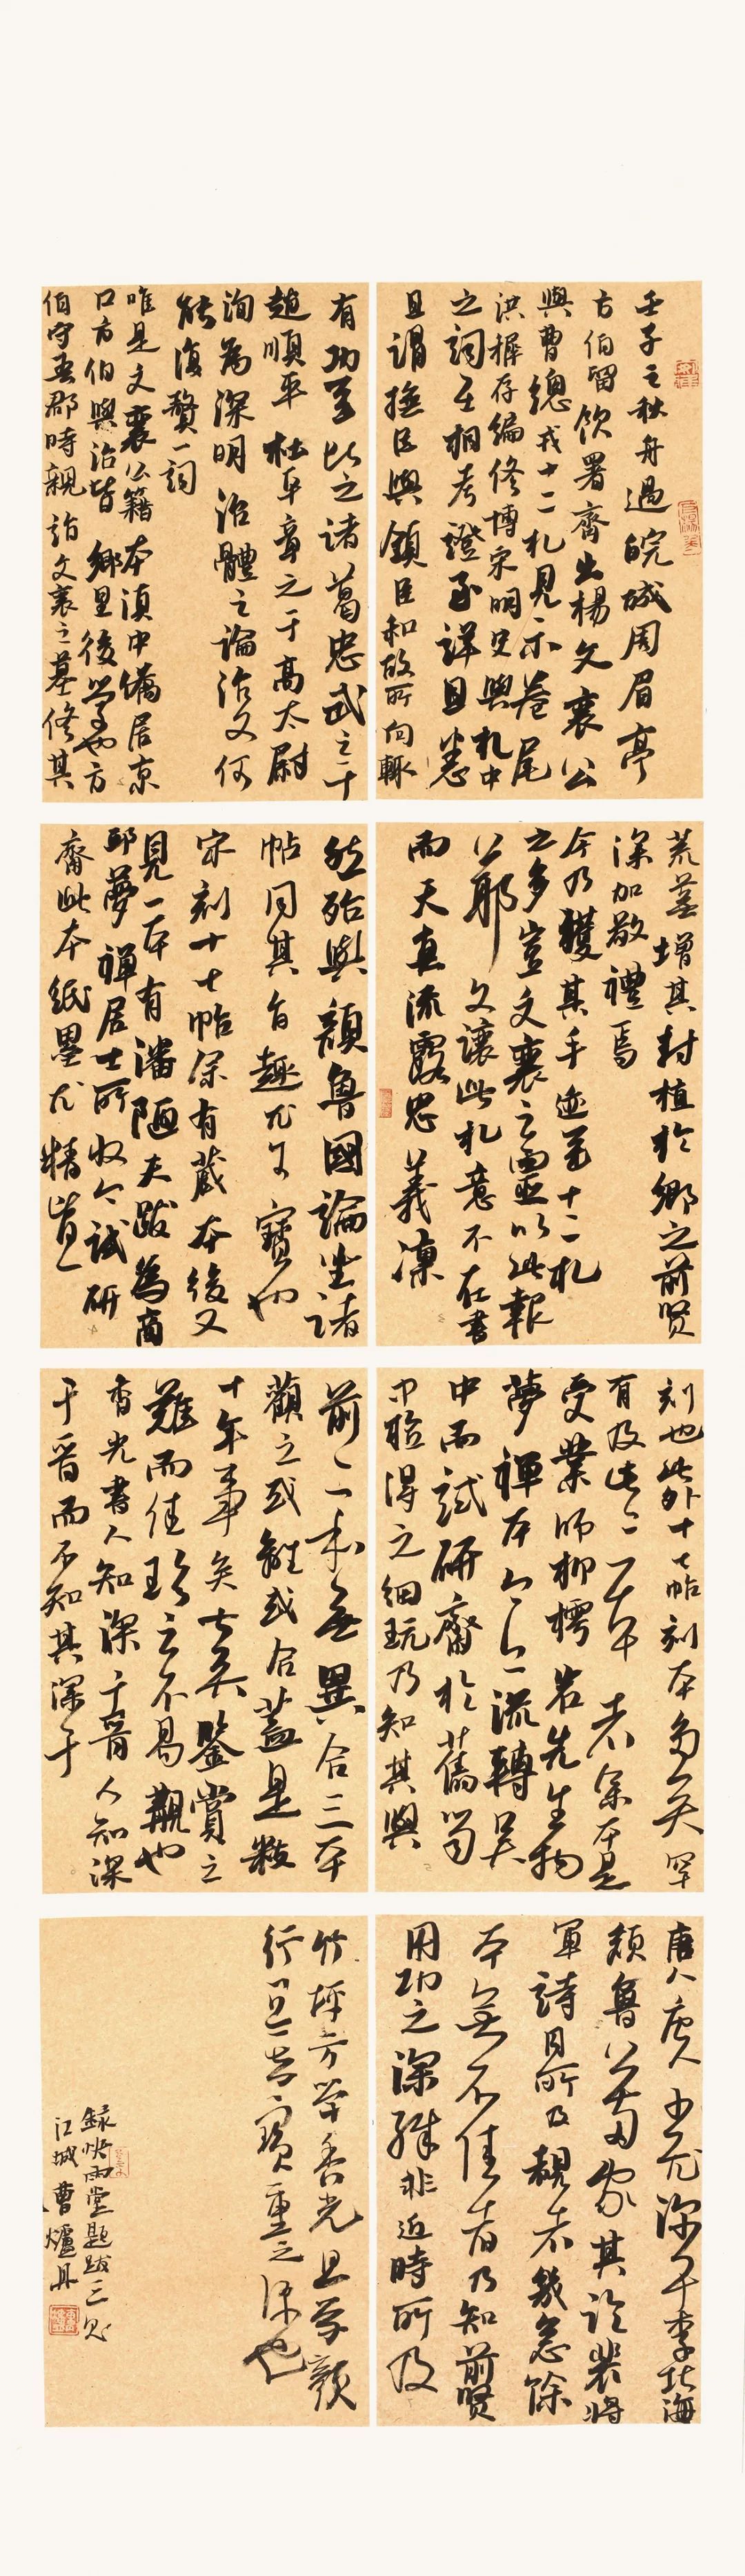 壬子之秋舟過皖城周眉亭
方伯留飲署齋出楊文襄公
與曹總戎十二札見示卷尾
洪稚存編修博宋明史與札中
之詞互相考證至詳且悉
且謂撫臣與鎮臣和故所向輒
有功至比之諸葛忠武之于
趙順平杜平章之于高太尉
洵為深明治體之論治又何
能復贅一詞
唯是文襄公籍本滇中僑居京
口方伯與治皆鄉里後學也方
伯守吾郡時親詣文襄之墓修其
荒墓增其封植於鄉之前賢
深加敬禮焉
今乃獲其手迹至十二札
之多豈文襄之靈以此報
公耶文讓此札意不在書
而天真流露忠義凜
然殆與顏魯國論坐諸
帖同其旨趣尤可寶也
宋刻十七帖余有藏本後又
見一本有潘陋夫跋為商
邱夢禪居士所收今試研
齋此本紙墨尤精皆一
刻也此外十七帖刻本多矣罕
有及此二本者余本是
受業師柳樗岩先生物
夢禪本亦流轉吳
中而試研齋於舊
中驗得之細玩乃知其與
前二本無異合三本
觀之或離或合蓋是數
十年事矣古矣鑒賞之
難而佳珍之不易觀也
香光書人知深于晉人知深
于晉而不知其深于
唐人唐人尤深于李北海
顏魯公蔔家其論裴將
軍詩目所及親者幾急餘
本無不佳者乃知前賢
用功之深殊非近時所及
竹坪方學香光且學顏
行且宜寶重之深也
錄快雨堂題跋三則
江城曹爐丹